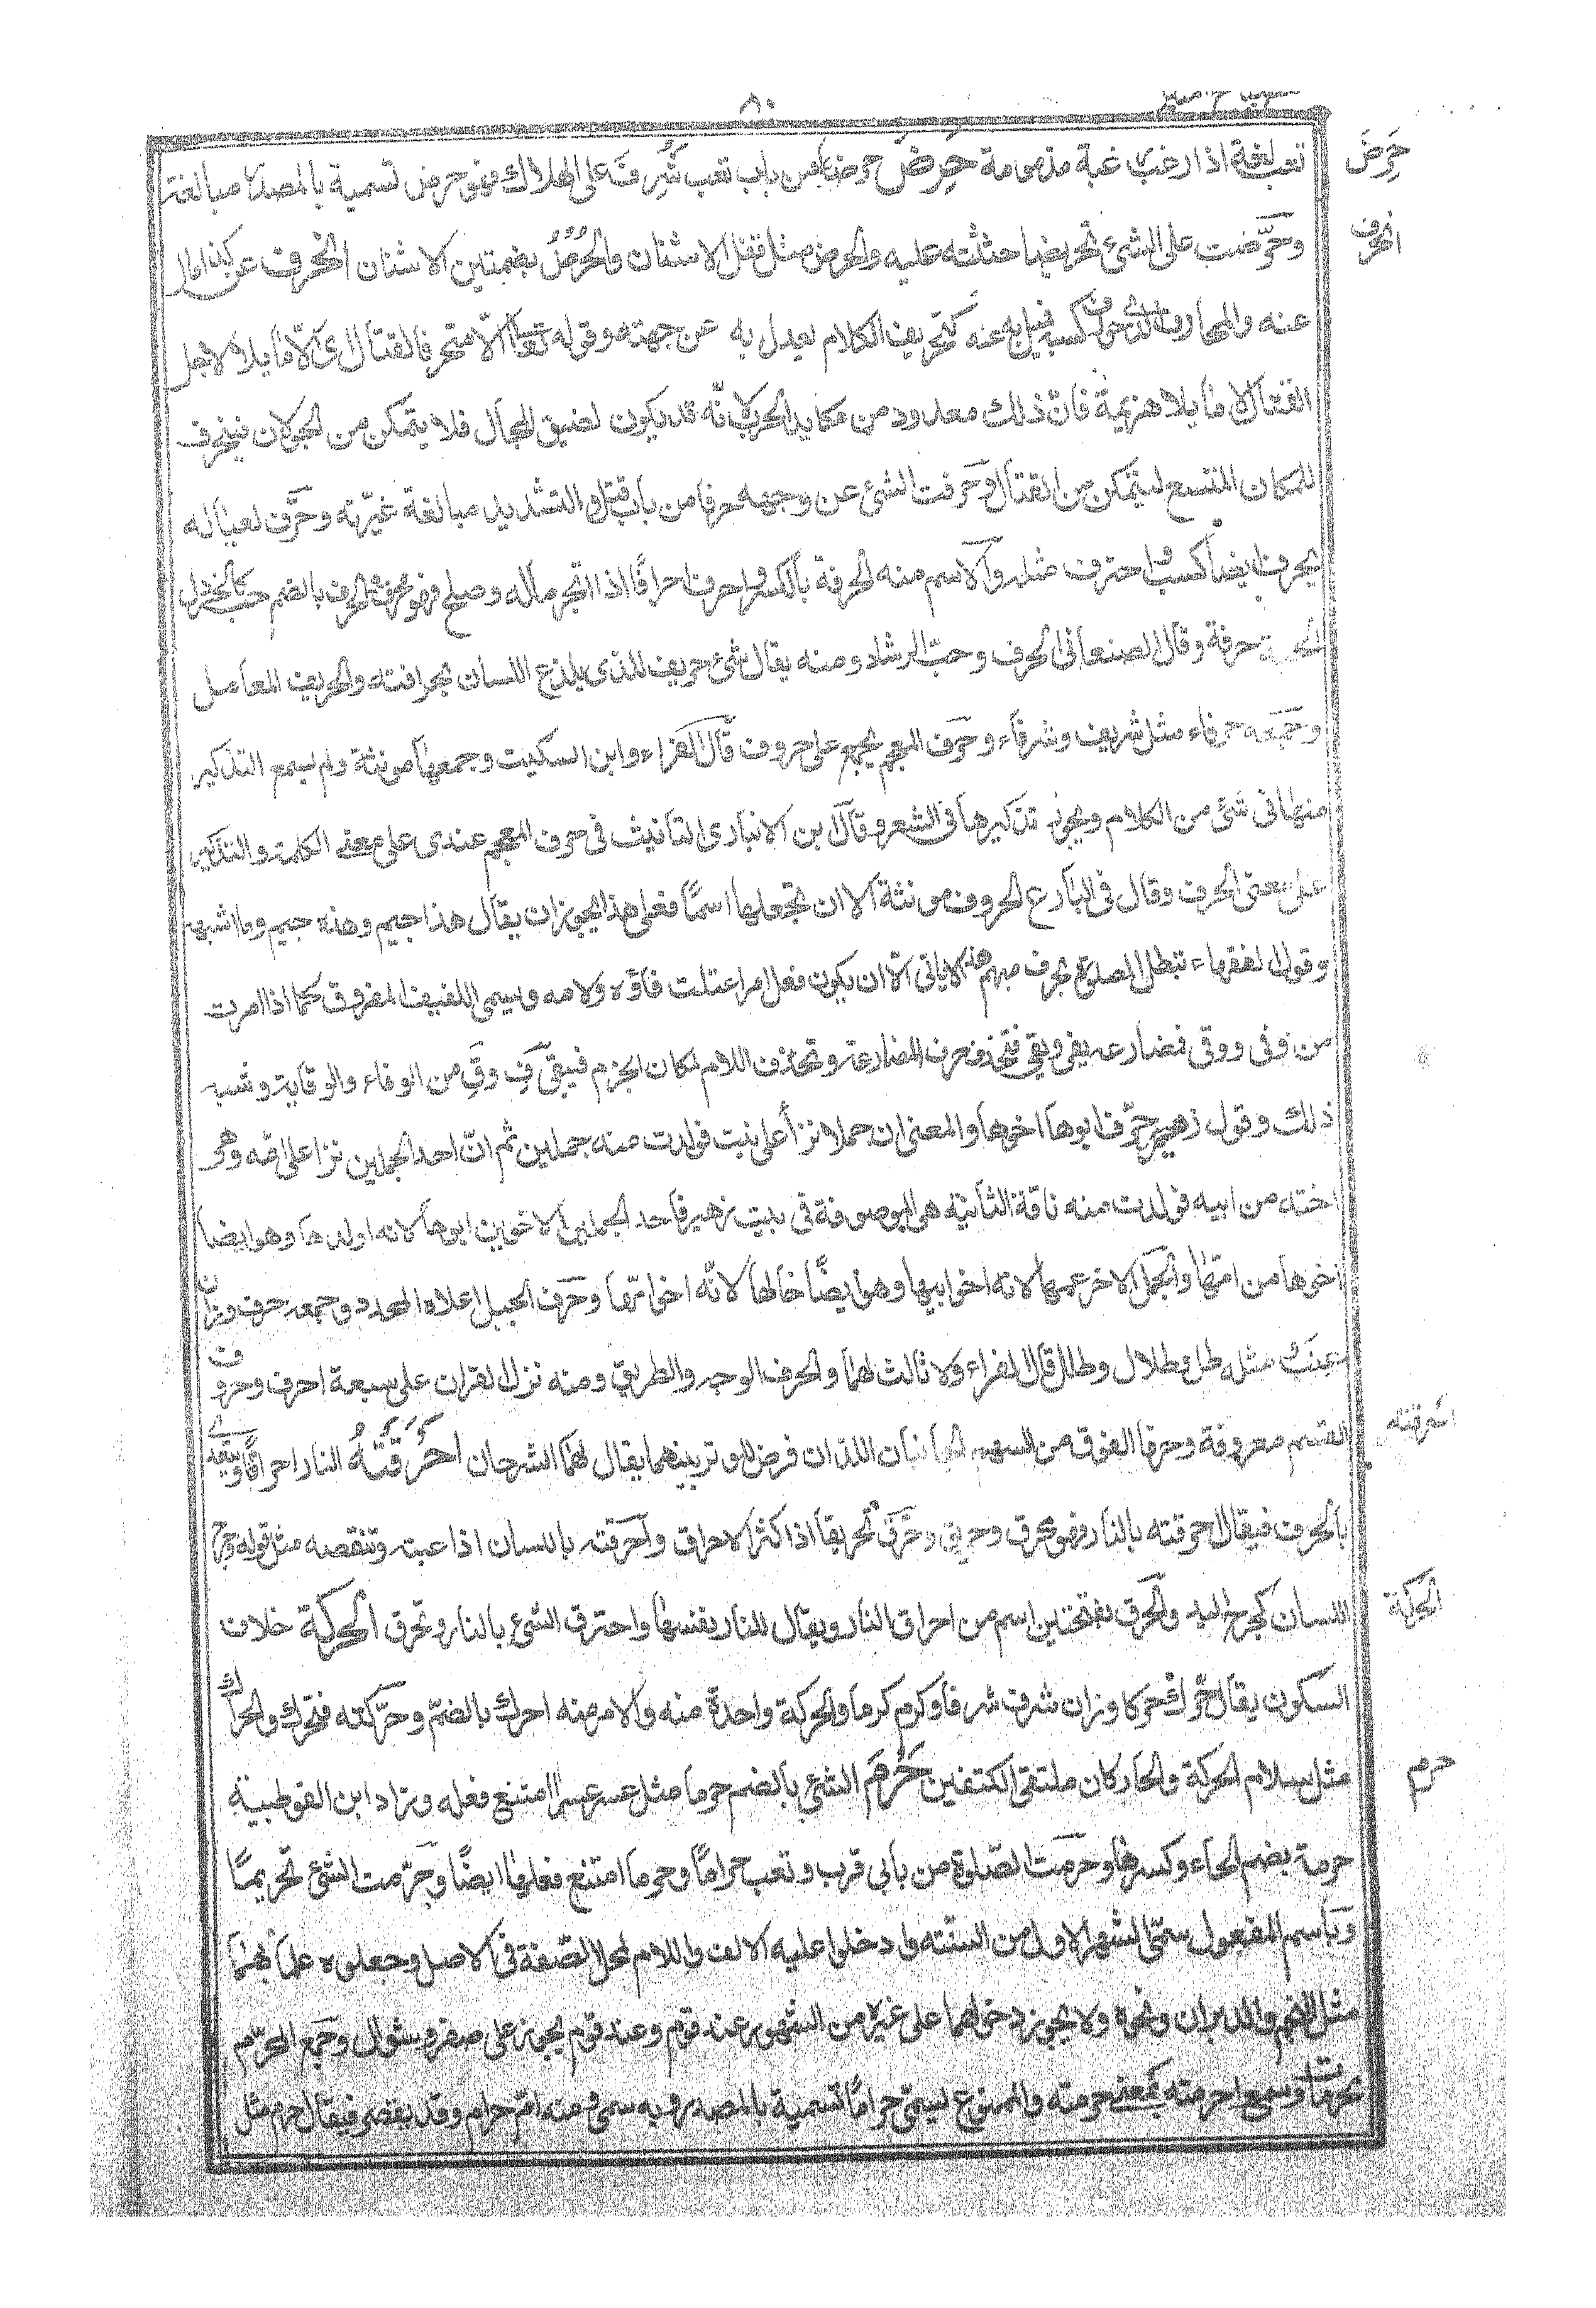 ٨٠
تعب لغة اذا رغب رغبة مذمومة حَرِضَ حرضا من باب تعب شرف على الهلاك فهو حرض تسمية بالمصدر مبالغة
حَرِضَ
وحرّضت على الشئ تحريضا حثثته عليه والحرض مثل قفل الاشنان والحُرُضُ بضمتين الاشنان انحرف عن كذا مال
انحرف
عنه والمحارف الذى حورف كسبه فميل به عنه كتحريف الكلام يعدل به عن جهته وقوله تعالى الّا متحرفا لقتال اى الّا مايلا لاجل
القتال لا مايلا هزيمة فانّ ذلك معدود من مكايد الحرب لانّه قد يكون لضيق المجال فلا يتمكن من الجولان فينحرف
للمكان المتسع ليتمكن من القتال وحرفت الشئ عن وجهه حرفا من باب قتل والتشديد مبالغة غيّرته وحَرَف لعياله
يحرف ايضا كسب واحترف مثله والاسم منه الحرفة بالكسر واحرف احرافًا اذا اتجر ماله وصلح فهو محرف والحرف بالضم حب كالخردل
حرفة وقال الصنعانى الحرف وحبّ الرشاد ومنه يقال شئ حريف للذى يلذع اللسان بحرافته والحريف المعامل
وجمعه حرفاء مثل شريف وشرفاء وحَرف المعجم يجمع على حروف قال الفراء وابن السكيت وجمعها مونثة ولم يسمع التذكير
منها فى شئ من الكلام ويجوز تذكيرها فى الشعر وقال ابن الانبارى التانيث فى حرف المعجم عندى على معنى الكلمة والتذكير
على معنى الحرف وقال فى البارع الحروف مونثة الا ان تجعلها اسمًا فعلى هذا يجوز ان يقال هذا جيم وهذه جيم وما اشبهه
وقول الفقهاء تبطل الصلوة بحرف مبهم هذا لا ياتى الّا ان يكون فعل امر اعتلت فاؤه ولامه ويسمى اللفيف المفروق كما اذا امرت
من وفى ووقى فمضارعه يفى ويقى فتحذف حرف المضارعة وتحذف اللام لمكان الجزم فيبقى فِ وقِ من الوفاء والوقاية وشبه
ذلك وقول زهير حرف ابوها اخوها والمعنى ان جملا نزا على بنت فولدت منه جملين ثم انّ احد الجملين نزا على امّه وهى
اخته من ابيه فولدت منه ناقة الثانية هى الموصوفة فى بيت زهير فاحد الجملين الاخوين ابوها لانه اولدها وهو ايضا
اخوها من امّها والجمل الاخر عمها لانه اخو ابيها وهو ايضًا خالها لانّه اخو امّها وحَرف الجبل اعلاه المحدد وجمعه حرف وزان
عنب مثله طل وطلال وطلل قال الفراء ولا ثالث لهما والحرف الوجه والطريق ومنه نزل القران على سبعة احرف وحروف
القسم معروفة وحرفا الفوق من السهم الجانبان اللذان فرض للوتر بينهما يقال لهما الشرجان احْرَقَتْهُ النار احراقًا ويتعدى
احرقته
بالحرف فيقال احرقته بالنار فهو محرق وحريق وحَرَّقَ تحريقا اذا كثر الاحراق واحرقته باللسان اذا عبته وتنقصه مثل قوله وجرح
اللسان كجرح اليد والحَرَق بفتحتين اسم من احراق النار ويقال للنار نفسها واحترق الشئ بالنار وتحرق الحركة خلاف
الحركة
السكون يقال حرُك حركا وزان شرف شرفا وكرم كرما والحركة واحدة منه والامر منه احرك بالضمّ وحرّكته فتحرك والحراك
مثل سلام الحركة والحاركان ملتقى الكتفين حَرُمَ الشئ بالضم حرما مثل عسر عسرا امتنع فعله وزاد ابن القوطيية
حرم
حرمة بضم الحاء وكسرها وحرمت الصّلوة من بابى قرب وتعب حرامًا وحرما امتنع فعلها ايضًا وحرّمت الشئ تحريمًا
وباسم المفعول سمّى الشهر الاول من السّنته وادخلوا عليه الالف واللام لمحل الصّفة فى الاصل وجعلوه علما بهما
مثل النجم والدبران ونحوه ولا يجوز دخولهما على غيره من الشهور عند قوم وعند قوم يجوز على صفر وشوال وجمع المحرّم
محرمات وسمع احرمته بمعنى حرمته والممنوع يسمّى حرامًا تسمية بالمصدر وبه سمى ومنه امّ حرام وقد يقصر فيقال حرم مثل